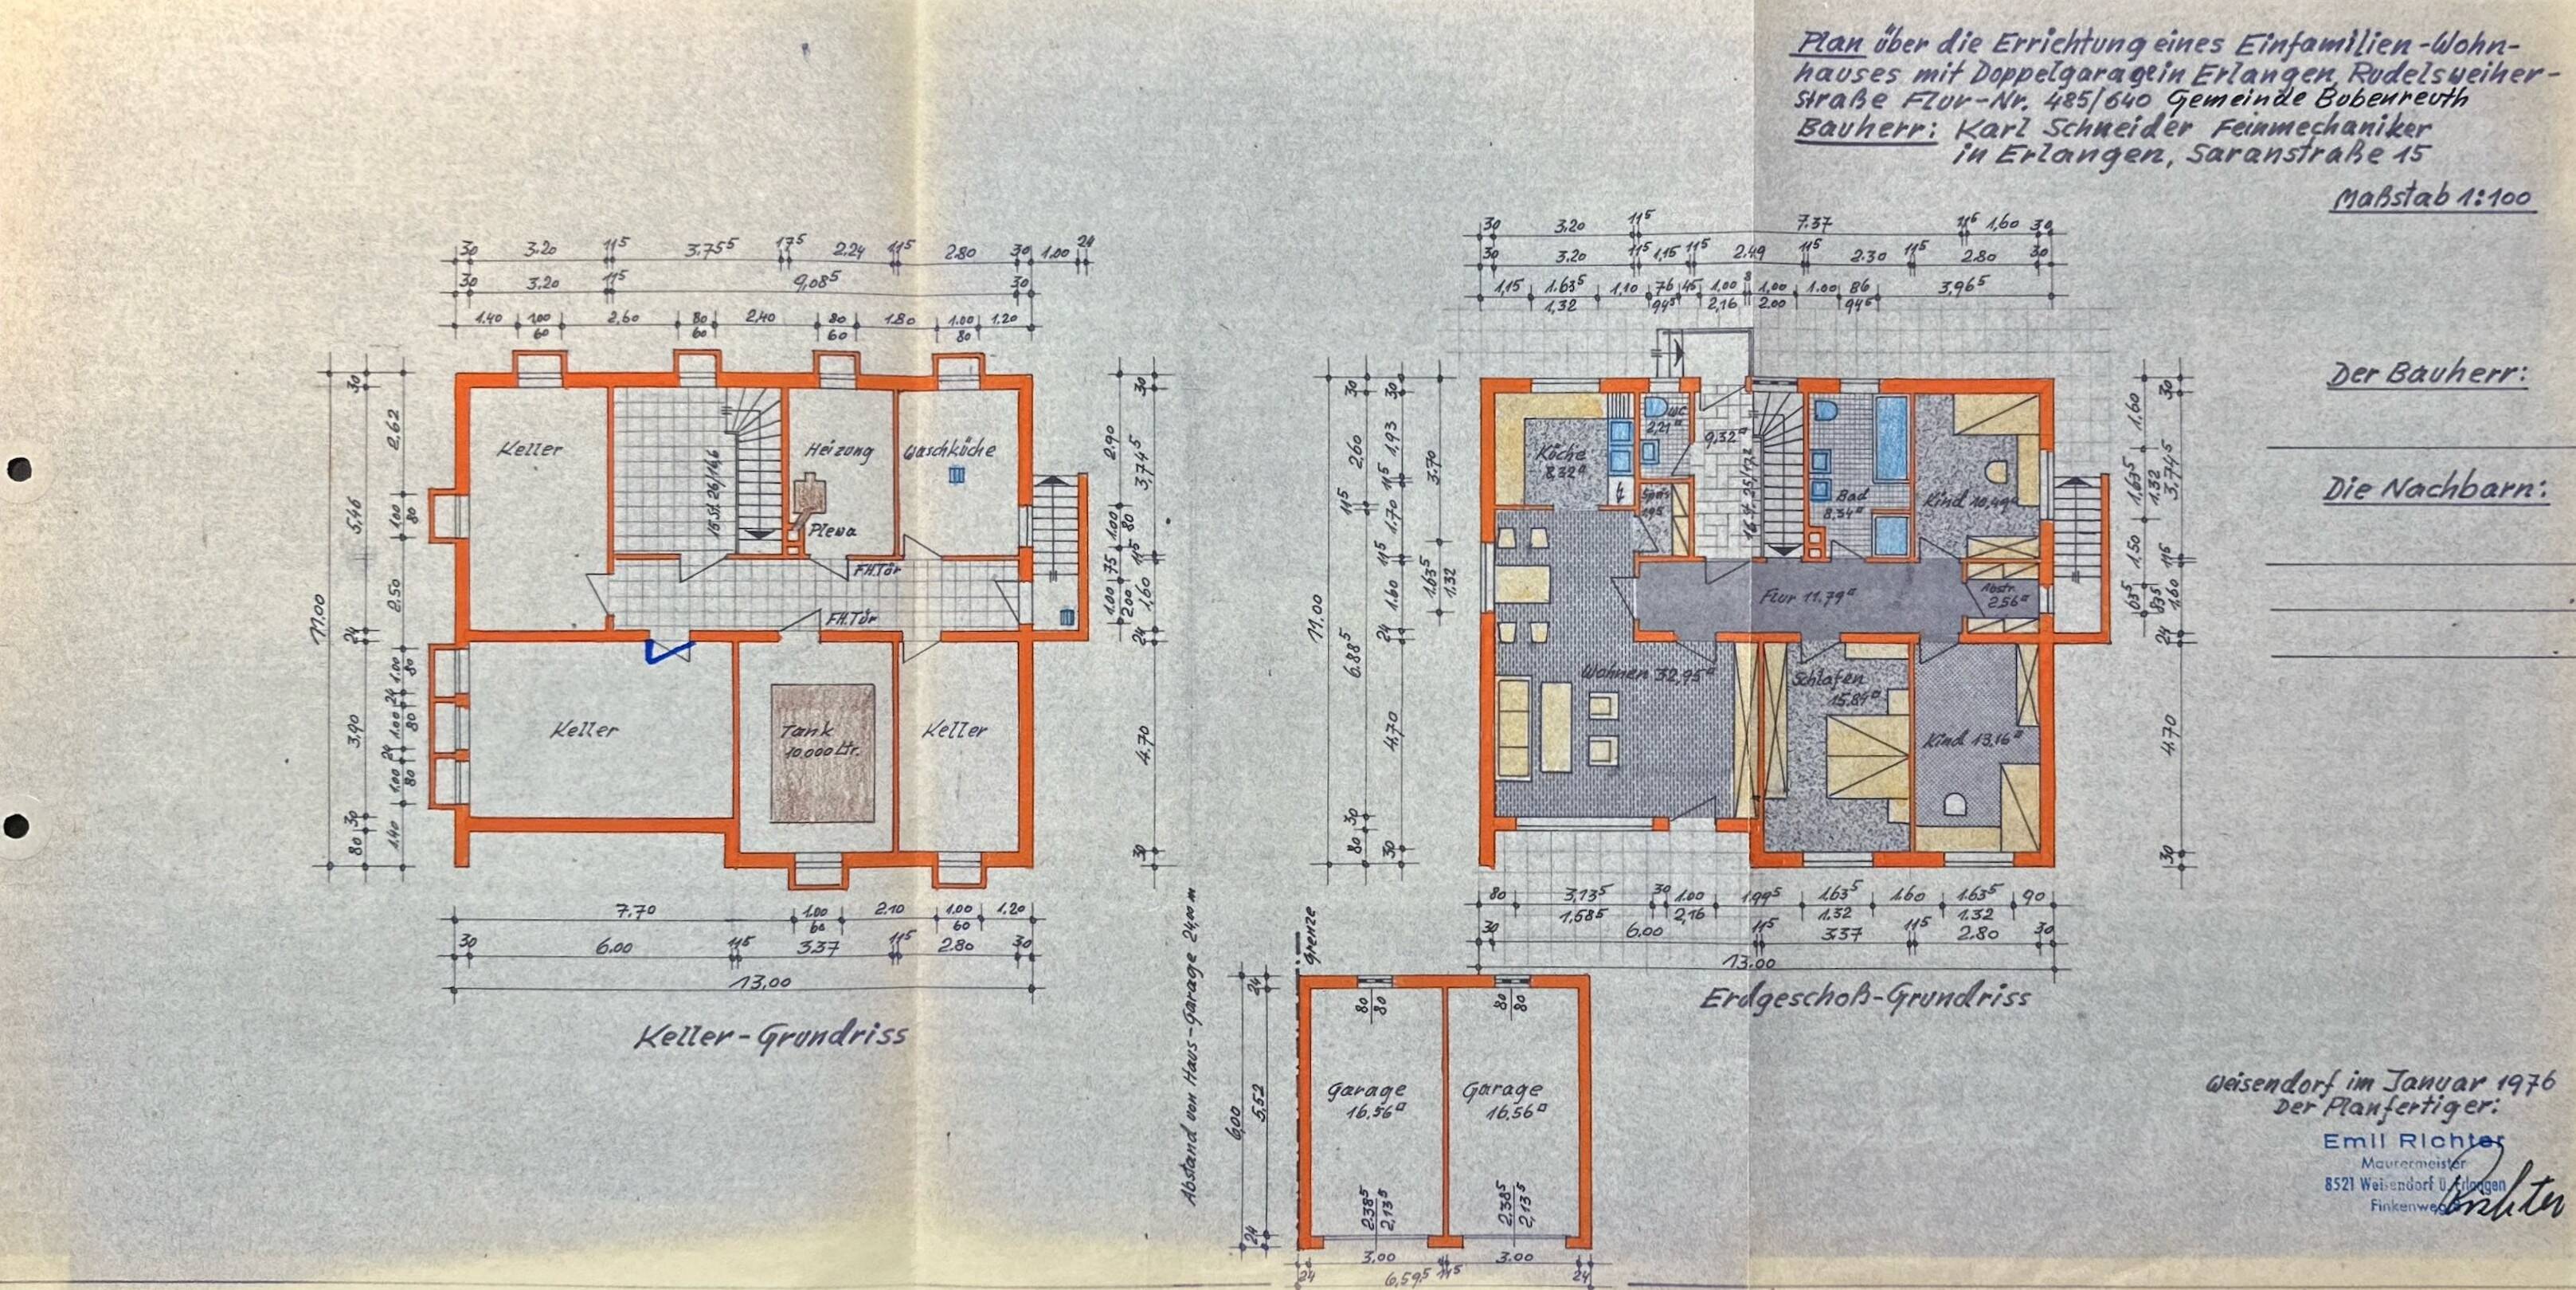 Plan über die Errichtung eines Einfamilien-Wohn-
hauses mit Doppelgarage in Erlangen, Rudelsweiher-
straße Flur-Nr. 485/640 Gemeinde Bubenreuth
Bauherr: Karl Schneider Feinmechaniker
in Erlangen, Saranstraße 15
Maßstab 1:100
Der Bauherr:
Die Nachbarn:
30 3.20 11⁵ 3.75⁵ 17⁵ 2.24 11⁵ 2.80 30 1.00 24
30 3.20 11⁵ 9,08⁵ 30
1.40 1.00 2,60 80 2,40 80 1.80 1.00 1.20
60 60 60 80
11.00
30 5,46 24 3,90 30 80
2,62 1.00 2.50 1.00 24 1.00 24 1.00 1,40
80 80 80 80
Keller
15 St. 26/16,6
Heizung
Waschküche
Plewa
FH.Tür
FH.Tür
Keller
Tank
10.000 Ltr.
Keller
2.90 1.00 75 1.00
80 200
30 3,74⁵ 11⁵ 1,60 24 4.70 30
7,70 1.00 2.10 1.00 1.20
60 60
30 6.00 11⁵ 3.37 11⁵ 2.80 30
13,00
Keller-Grundriss
30 3,20 11⁵ 7.37 11⁵ 1,60 30
30 3.20 11⁵ 1,15 11⁵ 2.49 11⁵ 2.30 11⁵ 2.80 30
1,15 1.63⁵ 1,10 76 45 1.00 8 1,00 1.00 86 3,96⁵
1,32 94⁵ 2,16 2.00 94⁵
11.00
30 2,60 11⁵ 6.88⁵ 30 80
30 1.93 11⁵ 1.70 11⁵ 1.60 24 4.70 30
3.70 1.63⁵
1.32
Küche
8,32
WC
2,21
9,32
16 St. 25/17,2
Speis
1.95
Bad
8,34
Kind 10,49
Flur 11.79
Abstr.
2,56
Wohnen 32,95
Schlafen
15.84
Kind 13,16
1,60 1.63⁵ 1,50 63⁵
1.32 83⁵
30 3,74⁵ 11⁵ 1.60 24 4.70 30
80 3,13⁵ 30 1.00 1.99⁵ 1.63⁵ 1.60 1.63⁵ 90
1,68⁵ 2,16 1.32 1.32
30 6.00 11⁵ 3.37 11⁵ 2.80 30
13.00
Erdgeschoß-Grundriss
Grenze
Abstand von Haus-Garage 24,00 m
6,00
24 5,52 24
80 80
80 80
Garage
16,56
Garage
16,56
2.38⁵
2,13⁵
2.38⁵
2,13⁵
3.00 3.00
24 6,59⁵ 11⁵ 24
Weisendorf im Januar 1976
Der Planfertiger:
Emil Richter
Maurermeister
8521 Weisendorf ü. Erlangen
Finkenweg
Richter